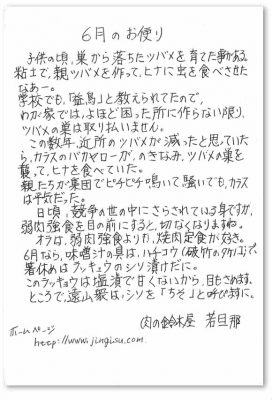 6月のお便り
子供の頃、巣から落ちたツバメを育てた事がある。
粘土で、親ツバメを作って、ヒナに虫を食べさせた
なあー。
学校でも、「益鳥」と教えられてたので、
わが家では、よほど困った所に作らない限り、
ツバメの巣は取り払いません。
この数年、近所のツバメが減ったと思っていた
ら、カラスのバカヤローが、のきなみ、ツバメの巣を
襲って、ヒナを食べていた。
親たちが集団でピチピチ鳴いて騒いでも、カラス
は平気だった。
日頃、競争の世の中にさらされている身ですが、
弱肉強食を目の前にすると、切なくなりますね。
オラは、弱肉強食よりか、焼肉定食が好き。
6月なら、味噌汁の具は、ハチコウ(破竹のタケノコ)で、
箸休めはラッキョウのシソ漬けだに。
このラッキョウは塩漬で甘くないから、目もさめます。
ところで、遠山衆は、シソを「ちそ」と呼びますに。
肉の鈴木屋 若旦那
ホームページ
http://www.jingisu.com